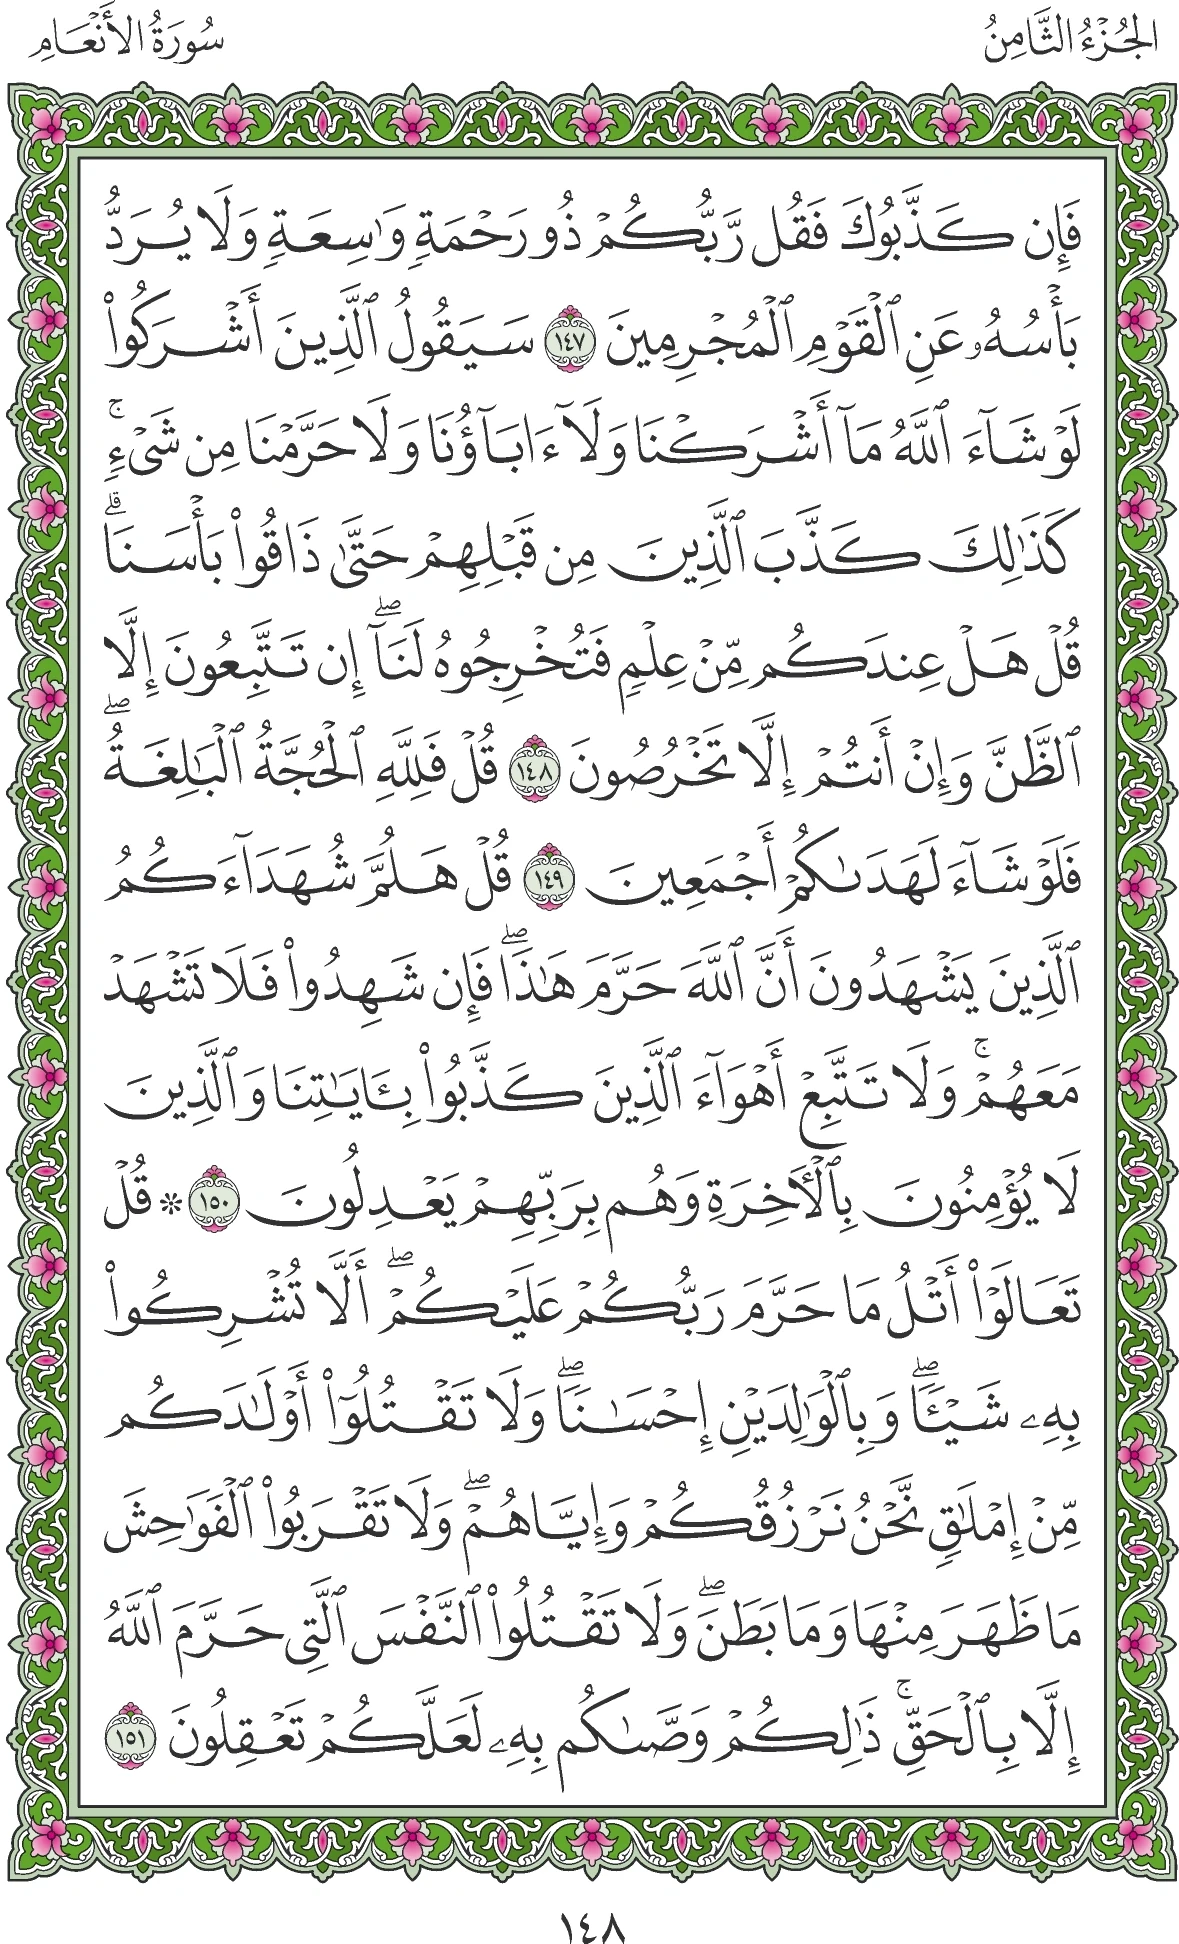 الجُزْءُ الثَّامِنُ
سُورَةُ الأَنْعَامِ
فَإِن كَذَّبُوكَ فَقُل رَّبُّكُمْ ذُو رَحْمَةٍ وَٰسِعَةٍ وَلَا يُرَدُّ
بَأْسُهُۥ عَنِ ٱلْقَوْمِ ٱلْمُجْرِمِينَ ١٤٧ سَيَقُولُ ٱلَّذِينَ أَشْرَكُوا۟
لَوْ شَآءَ ٱللَّهُ مَآ أَشْرَكْنَا وَلَآ ءَابَآؤُنَا وَلَا حَرَّمْنَا مِن شَىْءٍۚ
كَذَٰلِكَ كَذَّبَ ٱلَّذِينَ مِن قَبْلِهِمْ حَتَّىٰ ذَاقُوا۟ بَأْسَنَاۗ
قُلْ هَلْ عِندَكُم مِّنْ عِلْمٍ فَتُخْرِجُوهُ لَنَآۖ إِن تَتَّبِعُونَ إِلَّا
ٱلظَّنَّ وَإِنْ أَنتُمْ إِلَّا تَخْرُصُونَ ١٤٨ قُلْ فَلِلَّهِ ٱلْحُجَّةُ ٱلْبَٰلِغَةُۖ
فَلَوْ شَآءَ لَهَدَىٰكُمْ أَجْمَعِينَ ١٤٩ قُلْ هَلُمَّ شُهَدَآءَكُمُ
ٱلَّذِينَ يَشْهَدُونَ أَنَّ ٱللَّهَ حَرَّمَ هَٰذَاۖ فَإِن شَهِدُوا۟ فَلَا تَشْهَدْ
مَعَهُمْۚ وَلَا تَتَّبِعْ أَهْوَآءَ ٱلَّذِينَ كَذَّبُوا۟ بِـَٔايَٰتِنَا وَٱلَّذِينَ
لَا يُؤْمِنُونَ بِٱلْـَٔاخِرَةِ وَهُم بِرَبِّهِمْ يَعْدِلُونَ ١٥٠ * قُلْ
تَعَالَوْا۟ أَتْلُ مَا حَرَّمَ رَبُّكُمْ عَلَيْكُمْۖ أَلَّا تُشْرِكُوا۟
بِهِۦ شَيْـًٔاۖ وَبِٱلْوَٰلِدَيْنِ إِحْسَٰنًاۖ وَلَا تَقْتُلُوٓا۟ أَوْلَٰدَكُم
مِّنْ إِمْلَٰقٍ نَّحْنُ نَرْزُقُكُمْ وَإِيَّاهُمْۖ وَلَا تَقْرَبُوا۟ ٱلْفَوَٰحِشَ
مَا ظَهَرَ مِنْهَا وَمَا بَطَنَۖ وَلَا تَقْتُلُوا۟ ٱلنَّفْسَ ٱلَّتِى حَرَّمَ ٱللَّهُ
إِلَّا بِٱلْحَقِّۚ ذَٰلِكُمْ وَصَّىٰكُم بِهِۦ لَعَلَّكُمْ تَعْقِلُونَ ١٥١
١٤٨